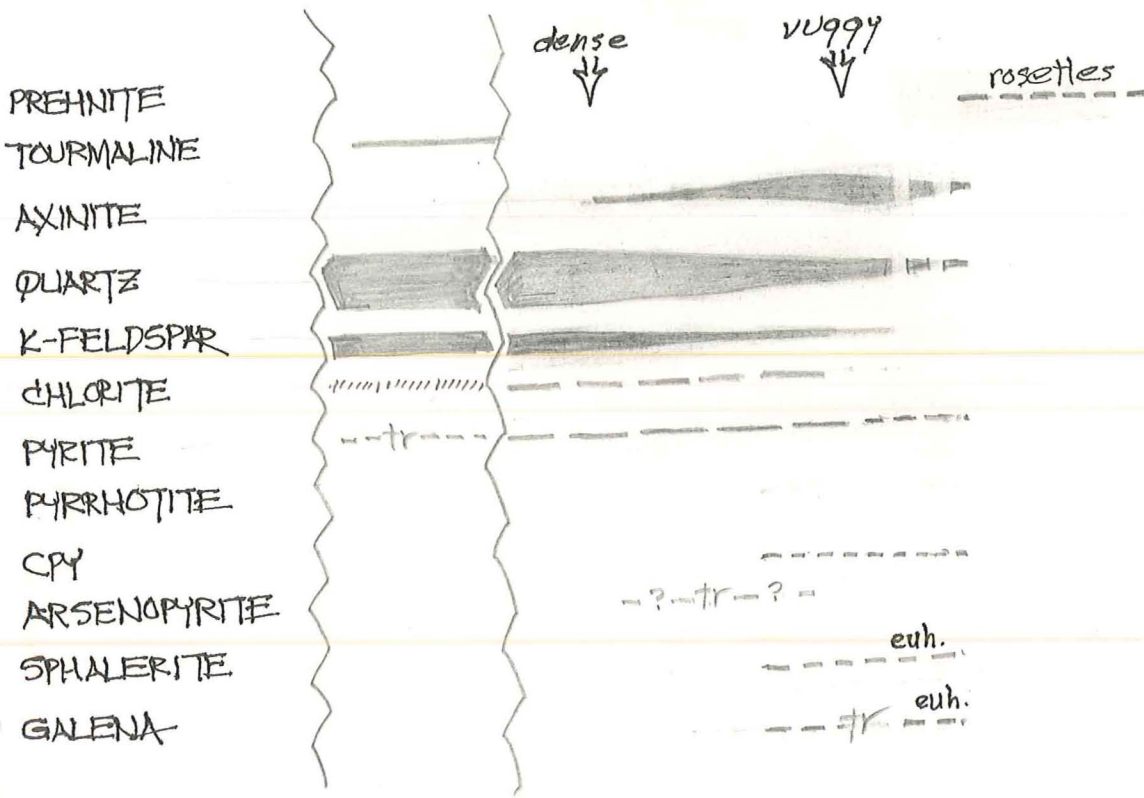 dense
vuggy
PREHNITE
rosettes
TOURMALINE
AXINITE
QUARTZ
K-FELDSPAR
CHLORITE
PYRITE
tr
PYRRHOTITE
CPY
ARSENOPYRITE
? tr ?
SPHALERITE
euh.
GALENA
euh.
tr